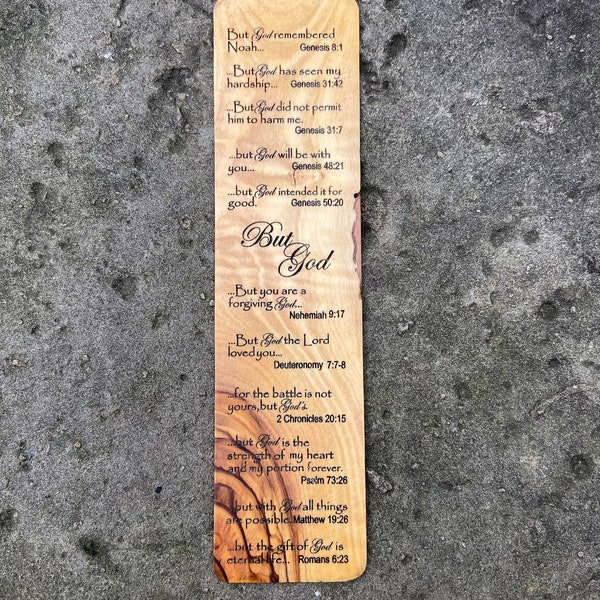 But God remembered
Noah... Genesis 8:1
...But God has seen my
hardship... Genesis 31:42
...But God did not permit
him to harm me.
Genesis 31:7
...but God will be with
you... Genesis 48:21
...but God intended it for
good. Genesis 50:20
But
God
...But you are a
forgiving God...
Nehemiah 9:17
...But God the Lord
loved you...
Deuteronomy 7:7-8
...for the battle is not
yours, but God's.
2 Chronicles 20:15
...but God is the
strength of my heart
and my portion forever.
Psalm 73:26
...but with God all things
are possible. Matthew 19:26
...but the gift of God is
eternal life... Romans 6:23